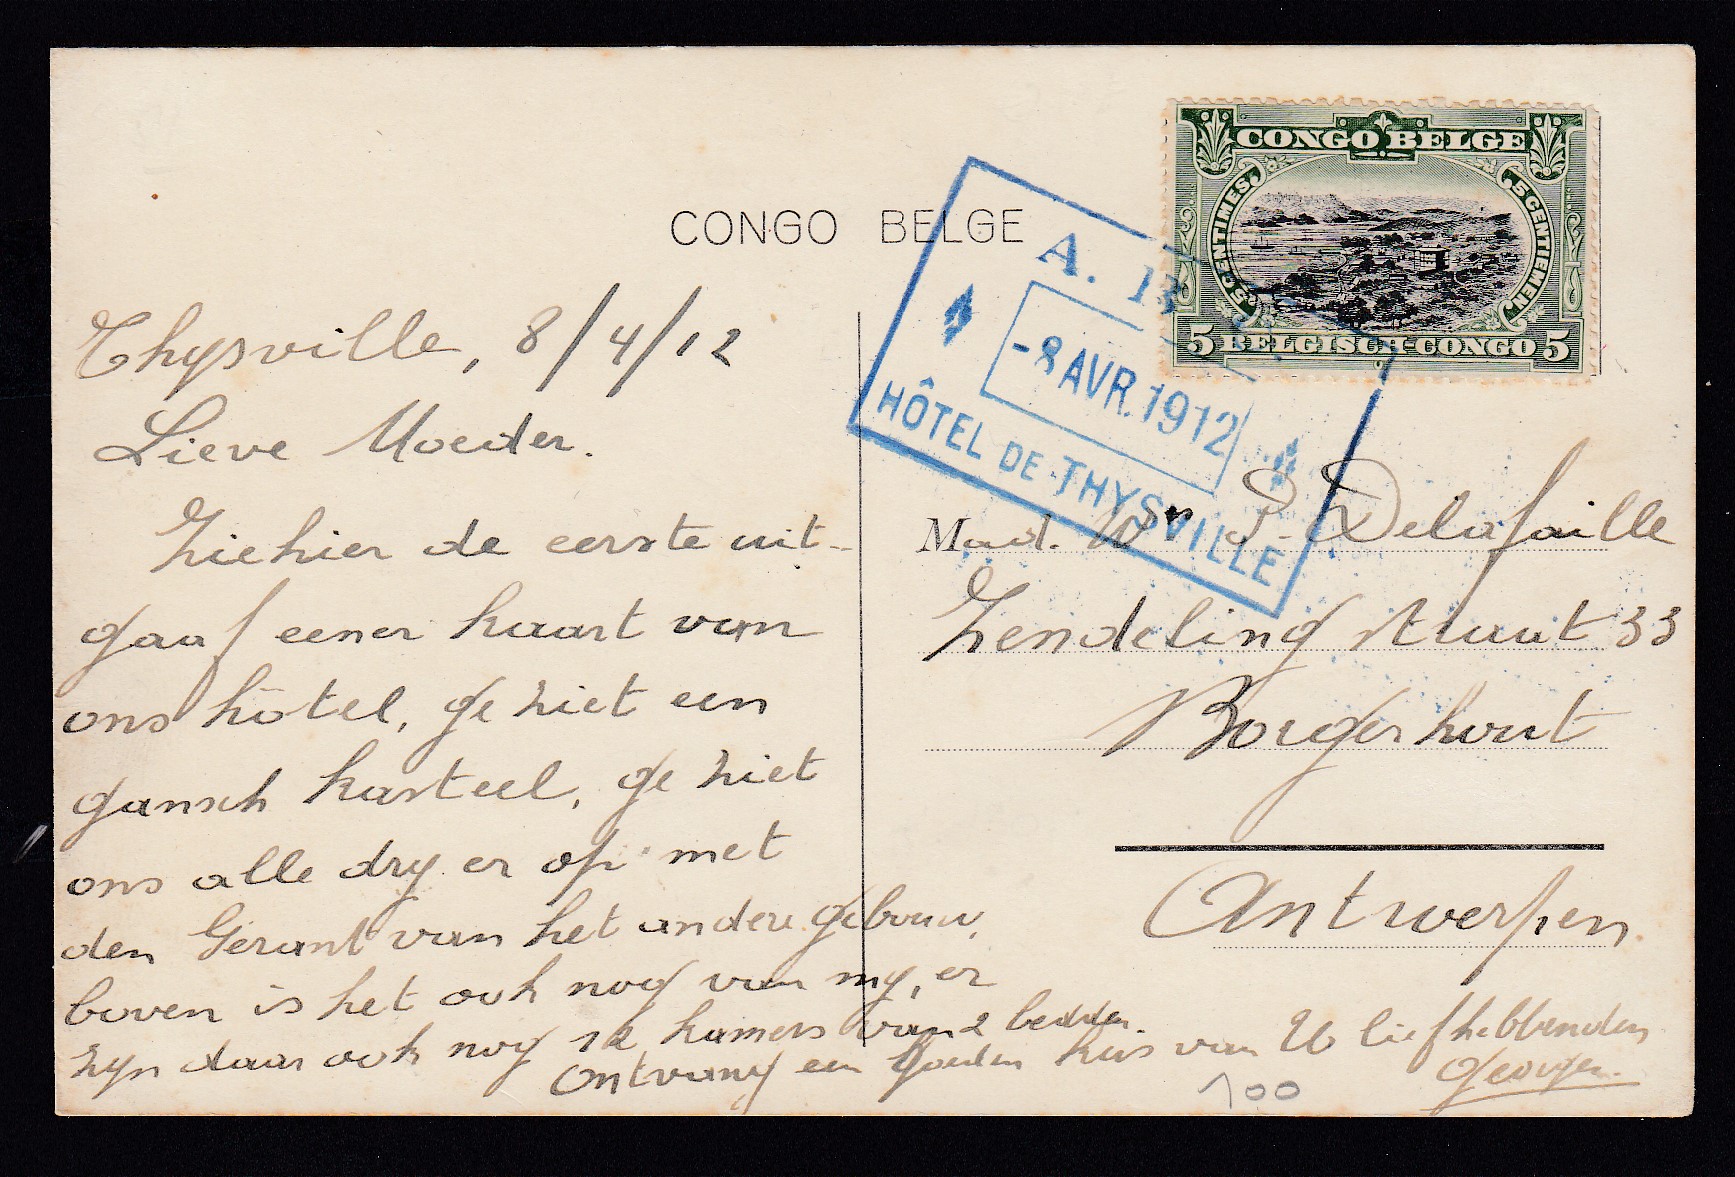 CONGO BELGE
CONGO BELGE
5 CENTIMES
5 CENTIEMEN
5 BELGISCH-CONGO 5
A.
-8 AVR. 1912
HÔTEL DE THYSVILLE
Thysville, 8/4/12
Lieve Moeder.
Ziehier de eerste uit-
gaaf eener kaart van
ons hôtel, ge ziet een
gansch kasteel, ge ziet
ons alle dry er op met
den Gérant van het andere gebouw,
boven is het ook nog van my, er
zyn daar ook nog 12 kamers van 2 bedden.
Ontvang een goeden kus van U liefhebbenden
Georges.
Mad. We P. Delafaille
Zendelingstraat 33
Borgerhout
Antwerpen.
100